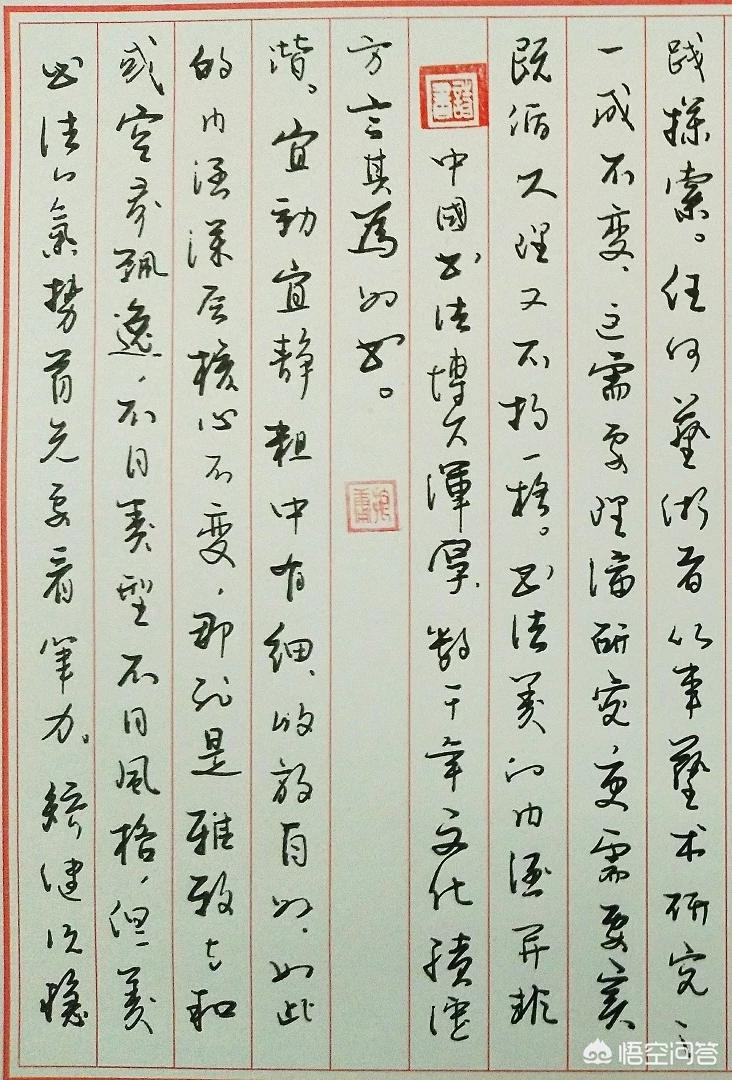 书法的氣势首先要看筆力。矫健沉稳
或空灵飘逸,不同美型不同風格,但美
的内涵深层核心不变,那就是雅致与和
谐。宜動宜静粗中有细,收放自如,如此
方言其為 书。
中國书法博大渾厚,數千年文化積淀
既循 理又不拘一格。书法美的内涵并非
一成不变,这需要理論研究更需要实
践探索。任何藝術者从事藝术研究
悟空问答